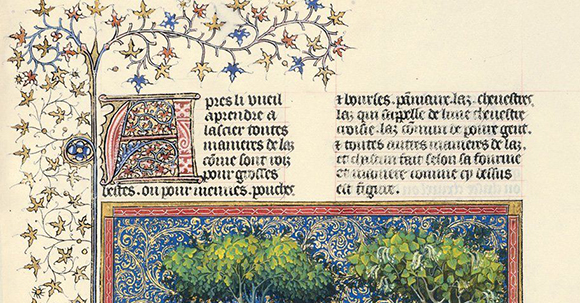 Apres li vueil
aprendre a
lascier toutes
manieres de laz
cõme sont roiz
pour grosses
bestes. ou pour menues. pouches
& bourses. panniaux. laz. cheuestre
laz qui sappelle de lune cheuestre
croisie. laz comun de poure gent.
& toutes autres manieres de laz.
et chascun fait selon sa fourme
et maniere comme cy dessus
est figure.